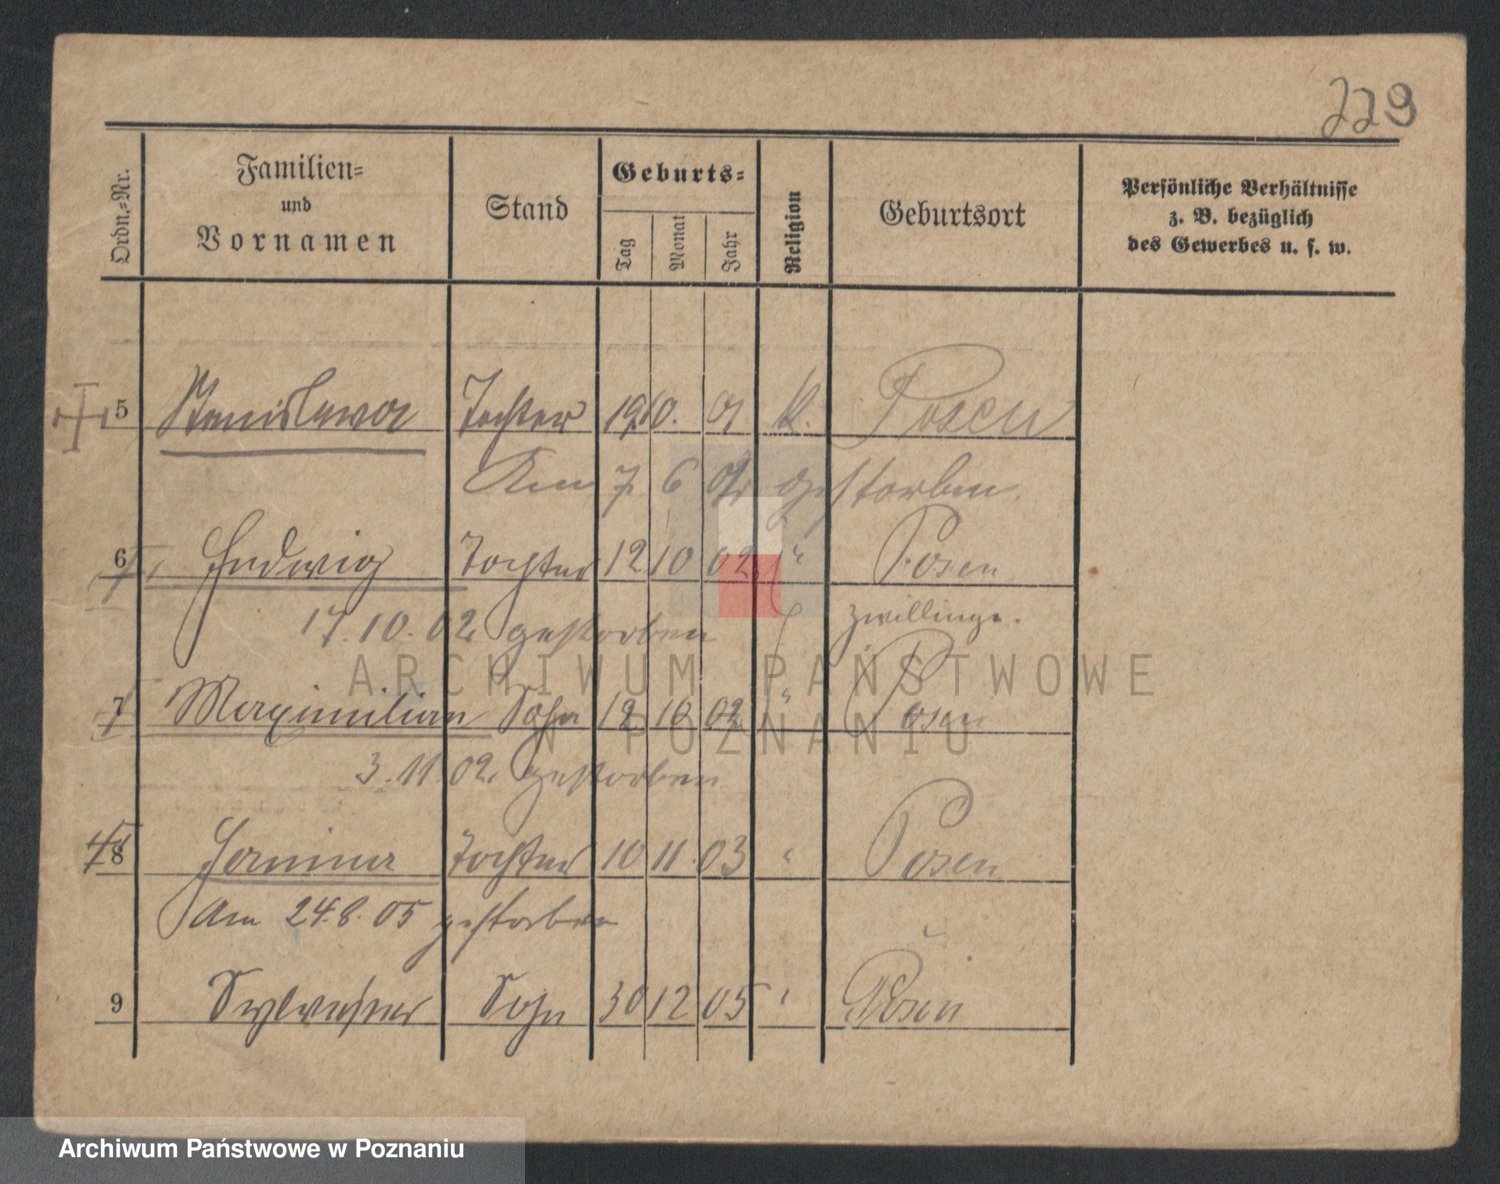 229
Ordn.-Nr.
Familien-
und
Vornamen
Stand
Geburts-
Tag
Monat
Jahr
Religion
Geburtsort
Persönliche Verhältnisse
z. B. bezüglich
des Gewerbes u. s. w.
5 Stanislawa Tochter 19. 10. 01 k. Posen
Am 7 6 gestorben.
6 Hedwig Tochter 12 10 02 " Posen
17. 10. 02 gestorben Zwillinge.
7 Maximilian Sohn 12 10 02 " Posen
3. 11 02. gestorben
8 Tochter 10 11 03 " Posen
Am 24. 8. 05 gestorben
9 Sylvester Sohn 30 12 05 " Posen
ARCHIWUM PAŃSTWOWE
W POZNANIU
Archiwum Państwowe w Poznaniu